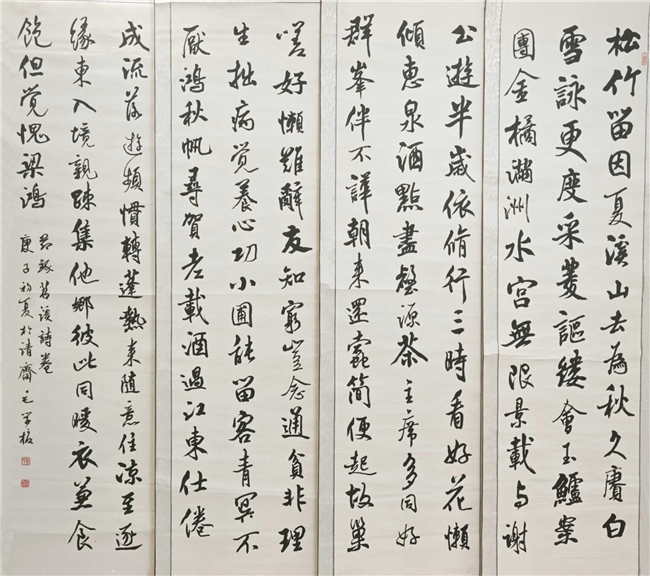 松竹留因夏溪山去為秋久賡白
雪詠更度采菱謳縷會玉鱸案
團金橘滿洲水宮無限景載与謝
公遊半歲依脩行三時看好花懶
傾惠泉酒點盡壑源茶主席多同好
群峯伴不譁朝来還蠹簡便起故巢
嗟好懶難辭友知窮豈念通貧非理
生拙病覺養心功小圃能留客青冥不
厭鴻秋帆尋賀老載酒過江東仕倦
成流落遊頻慣轉蓬熱来隨意住涼至逐
緣東入境親疎集他鄉彼此同暖衣兼食
飽但覚愧梁鴻
苕溪詩卷
庚子初夏於清齋